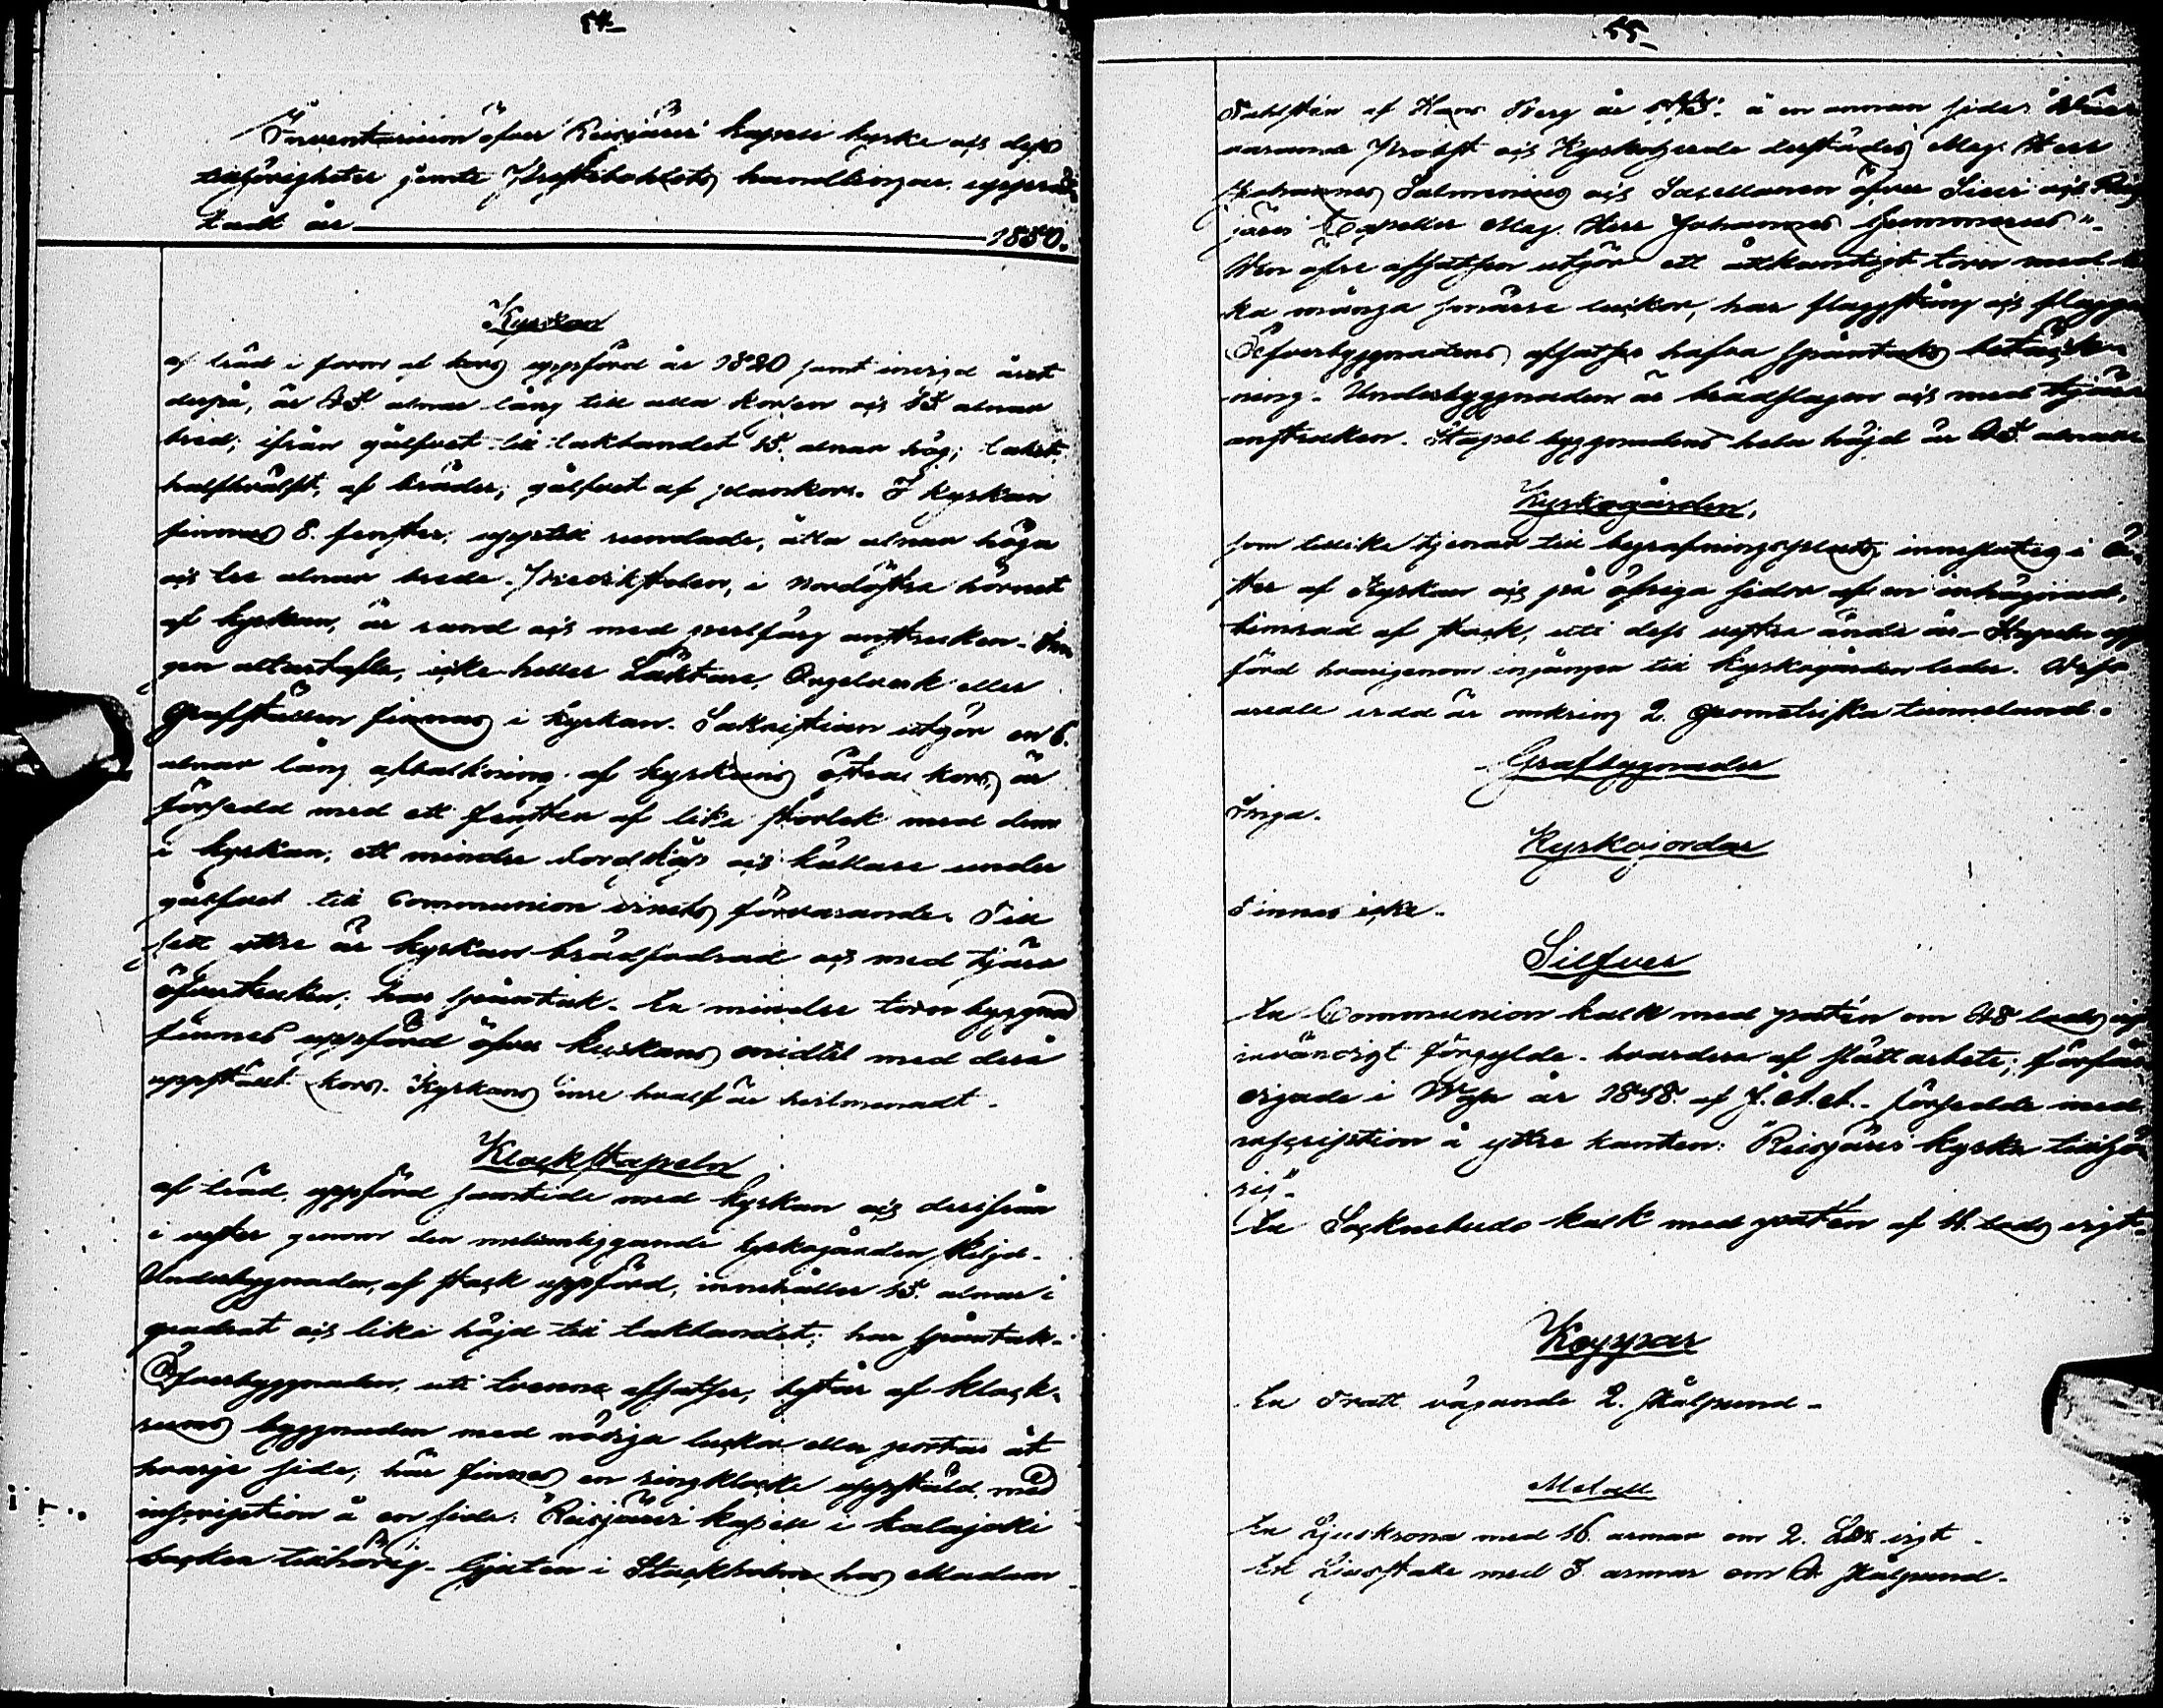 54
Inventarium öfver Reisjärvi kapell kyrka och dess
tillhörigheter jemte Prestebohlets handlingar, upprät-
tadt år 1850.
Kyrkan
af träd i form af kors uppförd år 1820 samt invigd året
derpå, är alnar lång till alla korsen och alnar
bred; ifrån gålfvet till takbandet 15 alnar hög; taket,
halfhvälft, af bräder; gålfvet af plankor. I kyrkan
finnes 8. fenster, upptill rundade, åtta alnar höga
och tre alnar breda. Predikstolen, i nordöstra hörnet
af kyrkan, är rund och med perlfärg anstruken. In-
gen altartafla, icke heller Läktare, Orgelverk eller
Grafställen finnas i kyrkan. Sakristian utgör en 6.
alnar lång afbalkning af kyrkans östra kors, är
försedd med ett fenster af lika storlek med dem
i kyrkan; ett mindre bordskåp och källare under
gålfvet till Communion vinets förvarande. Till
sitt yttre är kyrkan brädfodrad och med tjära
öfverstruken; har spåntak. En mindre torn byggnad
finnes uppförd öfver kyrkans midtel med derå
uppstäldt kors. Kyrkans inre hvalf är helmenadt.
Klockstapeln
af träd, uppförd samtide med kyrkan och derifrån
i vester genom den mellanliggande kyrkogården skiljd.
Underbyggnaden, af stock uppförd, innehåller 15. alnar i
quadrat och lika höjd till takbandet; har spåntak.
Öfverbyggnaden, uti tvenne afsatser, består af klock-
rums byggnaden med nödiga luckor eller portar åt
hvarje sida; här finnes en ringklocka uppstäld, med
inscription å en sida: "Reisjärvi kapell i Kalajoki
Socken tillhörig. Gjuten i Stockholm hos Madam
55
Fahlsten af Hans Berg år å en annan sida:
varande Probst och Kyrkoherde derstädes Mag. Herr
Johannes Salmenius och Sacellanen öfver Sievi och Reis-
järvi Capeller Mag. Herr Johannes Gummerus".
Den öfre afsatsen utgör ett åttkantigt torn med li-
ka många smärre luckor, har flaggstång och flagga
Öfverbyggnadens afsatser hafva spåntaks betäck-
ning. Underbyggnaden är brädslagen och med tjära
anstruken. Stapel byggnadens hela höjd är alnar.
Kyrkogården,
som tillika tjenar till begrafningsplats, inneslutes i Ös-
ter af Kyrkan och på öfriga sidor af en inhägnad,
timrad af stock, uti dess vestra ände är Stapeln upp-
förd hvarigenom ingången till kyrkogården leder. Dess
areale vidd är omkring 2. geometriska tunneland.
Grafbyggnader
Inga.
Kyrkojordar
Finnes icke.
Silfver
En Communion kalk med patén om 48 lods vigt
invändigt förgylda. hvardera af slätt arbete; förfär-
digade i Wasa år 1848 af J. A. A. försedda med
inscription å yttre kanten: "Reisjärvi kyrka tillhö-
rig".
En Sockenbuds kalk med patén af lods vigt.
Koppar
En Tratt vägande 2. skålpund.
Metall
En Ljuskrona med 16. armar om 2. vigt.
En Ljusstake med armar om skålpund.